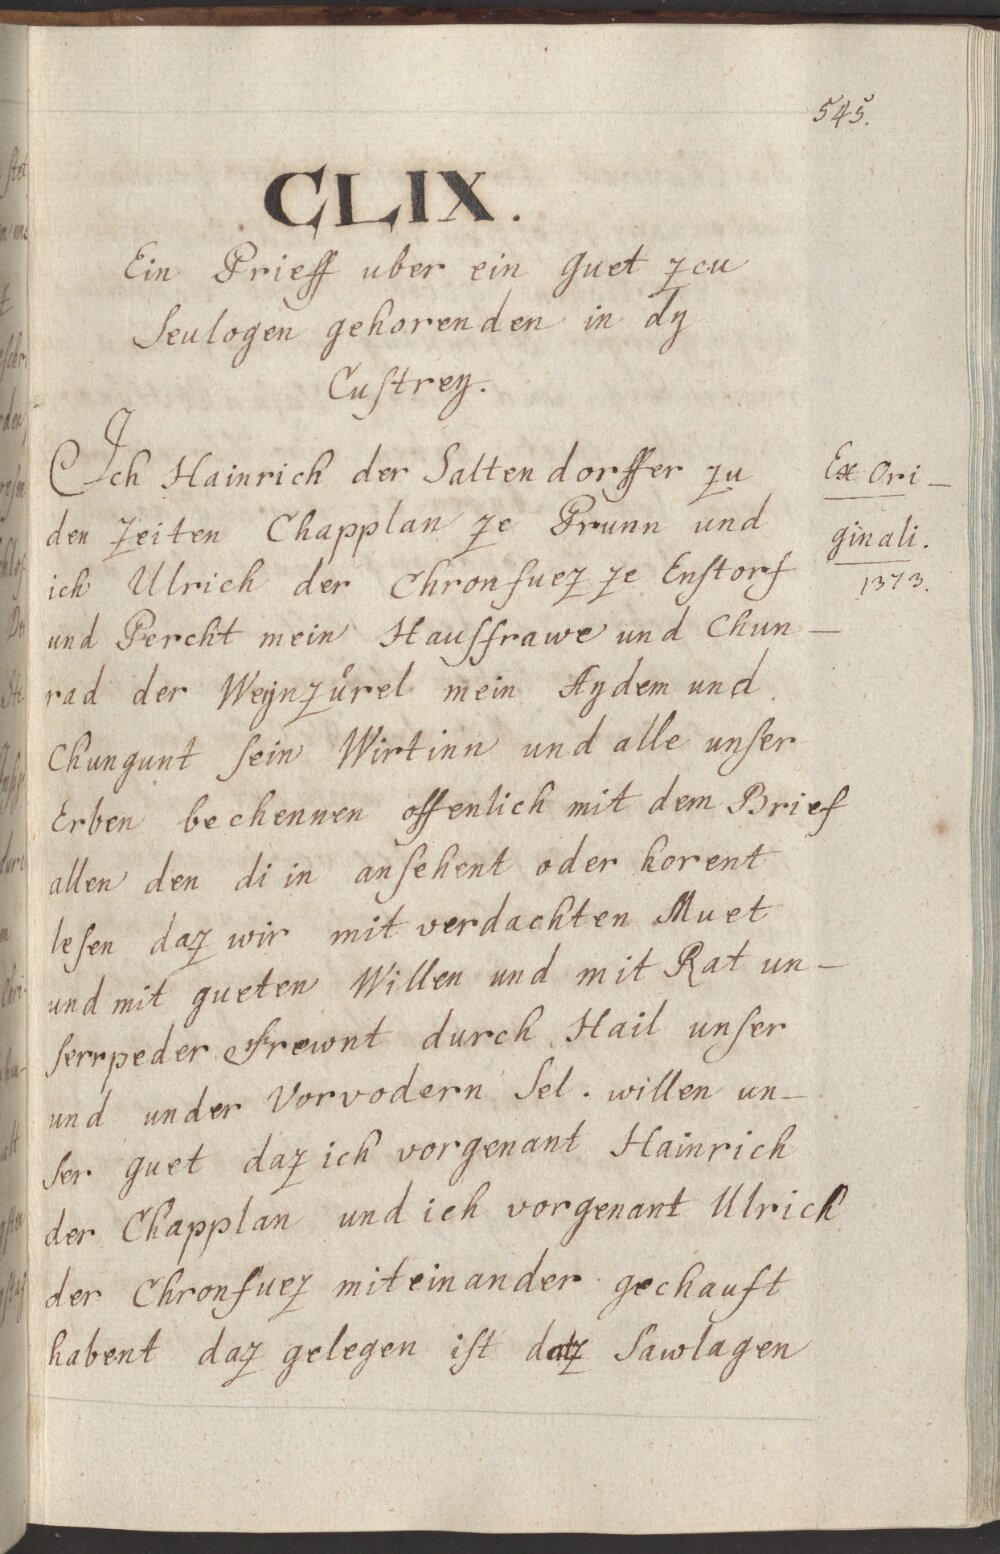 545.
CLIX.
Ein Prieff uber ein guet zcu
Seulogen gehorenden in dy
Custrey.
Ich Hainrich der Saltendorffer zu
den zeiten Chapplan ze Prunn und
ich Ulrich der Chronfuez ze Enstorf
und Percht mein Hausfrawe und Chun-
rad der Weynzůrel mein Aydem und
Chungunt sein Wirtinn und alle unser
Erben bechennen offenlich mit dem Brief
allen den di in ansehent oder horent
lesen daz wir mit verdachten Muet
und mit gueten Willen und mit Rat un-
serrpeder Frewnt durch Hail unser
und under Vorvodern Sel. willen un-
ser guet daz ich vorgenant Hainrich
der Chapplan und ich vorgenant Ulrich
der Chronfuez miteinander gechauft
habent daz gelegen ist datz Sawlagen
Ex Ori-
ginali.
1373.